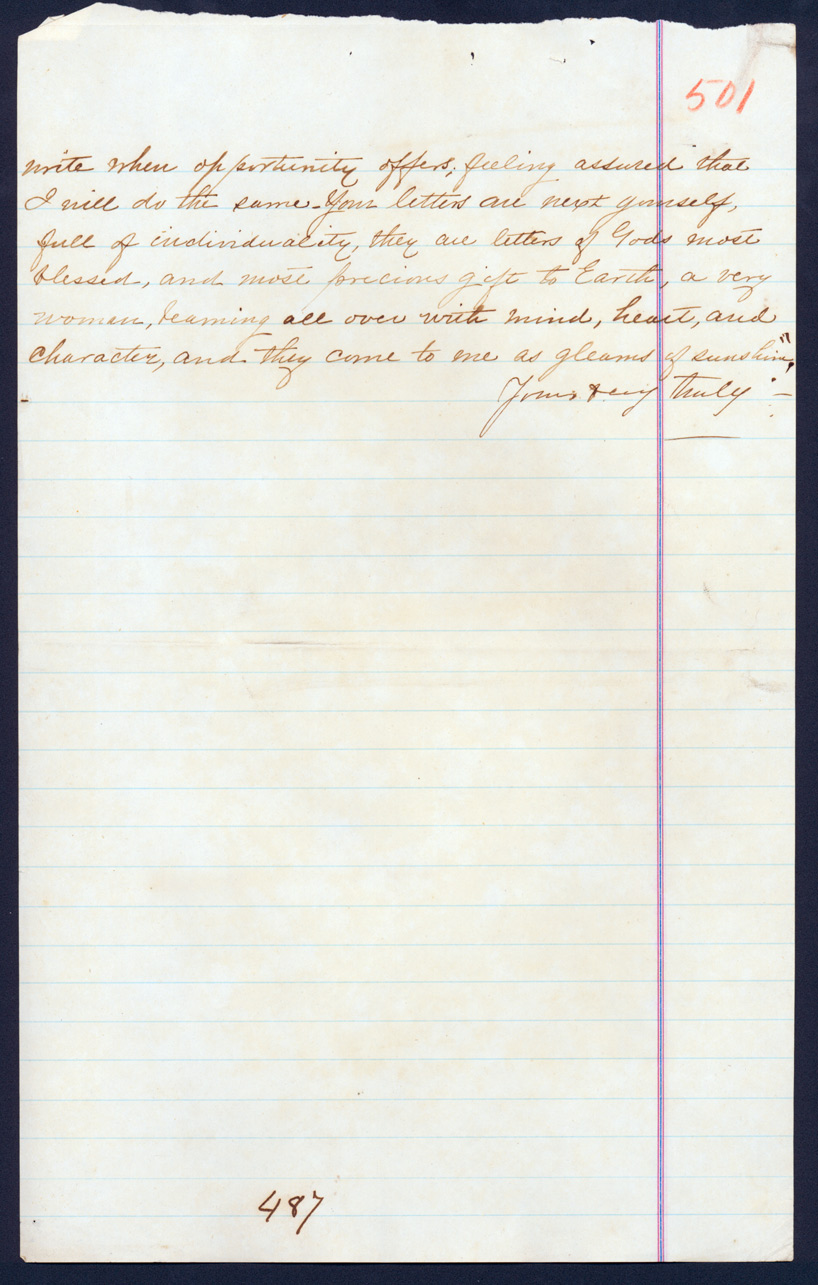 501
write when opportunity offers, feeling assured that
I will do the same. Your letters are next yourself,
full of individuality, they are letters of Gods most
blessed, and most precious gift to Earth, a very
woman, beaming all over with mind, heart, and
character, and they come to me as gleams of sunshine."
Yours very truly —
487